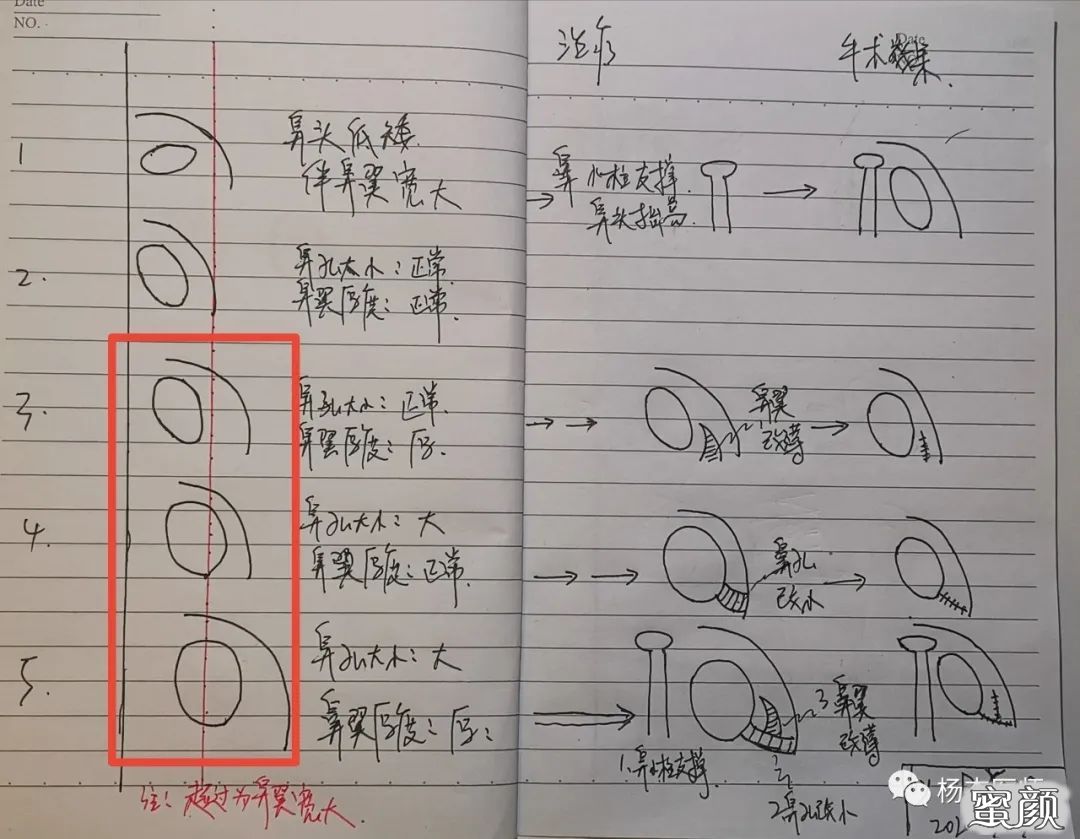 Date
NO.
治疗
Date
手术效果
1
鼻头低矮
伴鼻翼宽大
鼻小柱支撑.
鼻头抬高.
2.
鼻孔大小:正常.
鼻翼厚度:正常.
3.
鼻孔大小:正常.
鼻翼厚度:厚.
鼻翼
改薄
4.
鼻孔大小:大
鼻翼厚度:正常.
鼻孔
改小
5.
鼻孔大小:大
鼻翼厚度:厚:
1.鼻小柱支撑
2鼻孔改小
3鼻翼
改薄
注:超过为鼻翼宽大.
蜜颜